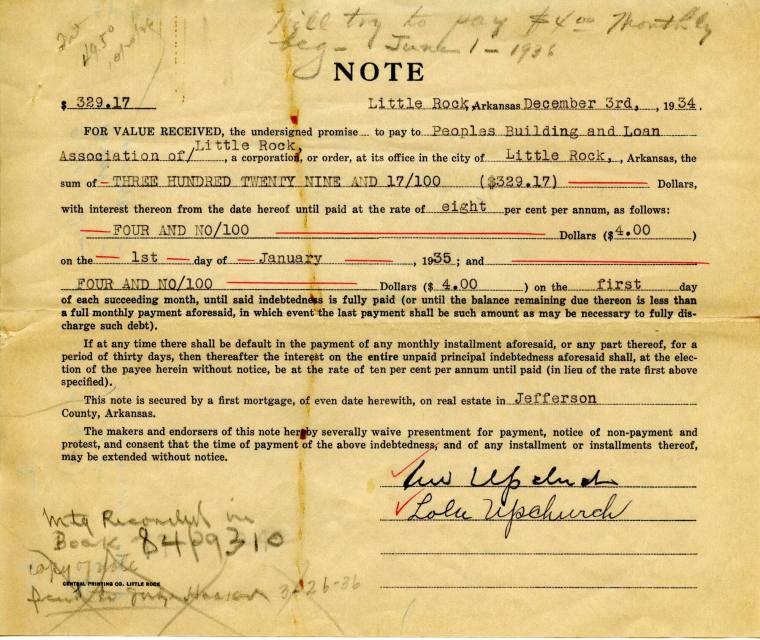 Int
49.50
Will try to pay $4.00 Monthly
beg- June 1- 1936
NOTE
$ 329.17 Little Rock, Arkansas December 3rd, , 1934.
FOR VALUE RECEIVED, the undersigned promise to pay to Peoples Building and Loan
Association of/Little Rock, , a corporation, or order, at its office in the city of Little Rock, , Arkansas, the
sum of THREE HUNDRED TWENTY NINE AND 17/100 ($329.17) Dollars,
with interest thereon from the date hereof until paid at the rate of eight per cent per annum, as follows:
FOUR AND NO/100 Dollars ($4.00 )
on the 1st day of January , 1935; and
FOUR AND NO/100 Dollars ($ 4.00 ) on the first day
of each succeeding month, until said indebtedness is fully paid (or until the balance remaining due thereon is less than
a full monthly payment aforesaid, in which event the last payment shall be such amount as may be necessary to fully dis-
charge such debt).
If at any time there shall be default in the payment of any monthly installment aforesaid, or any part thereof, for a
period of thirty days, then thereafter the interest on the entire unpaid principal indebtedness aforesaid shall, at the elec-
tion of the payee herein without notice, be at the rate of ten per cent per annum until paid (in lieu of the rate first above
specified).
This note is secured by a first mortgage, of even date herewith, on real estate in Jefferson
County, Arkansas.
The makers and endorsers of this note hereby severally waive presentment for payment, notice of non-payment and
protest, and consent that the time of payment of the above indebtedness, and of any installment or installments thereof,
may be extended without notice.
Upchurch
Lola Upchurch
Mtg Recorded in
Book 84 P9310
copy of note
CENTRAL PRINTING CO. LITTLE ROCK
3-26-36